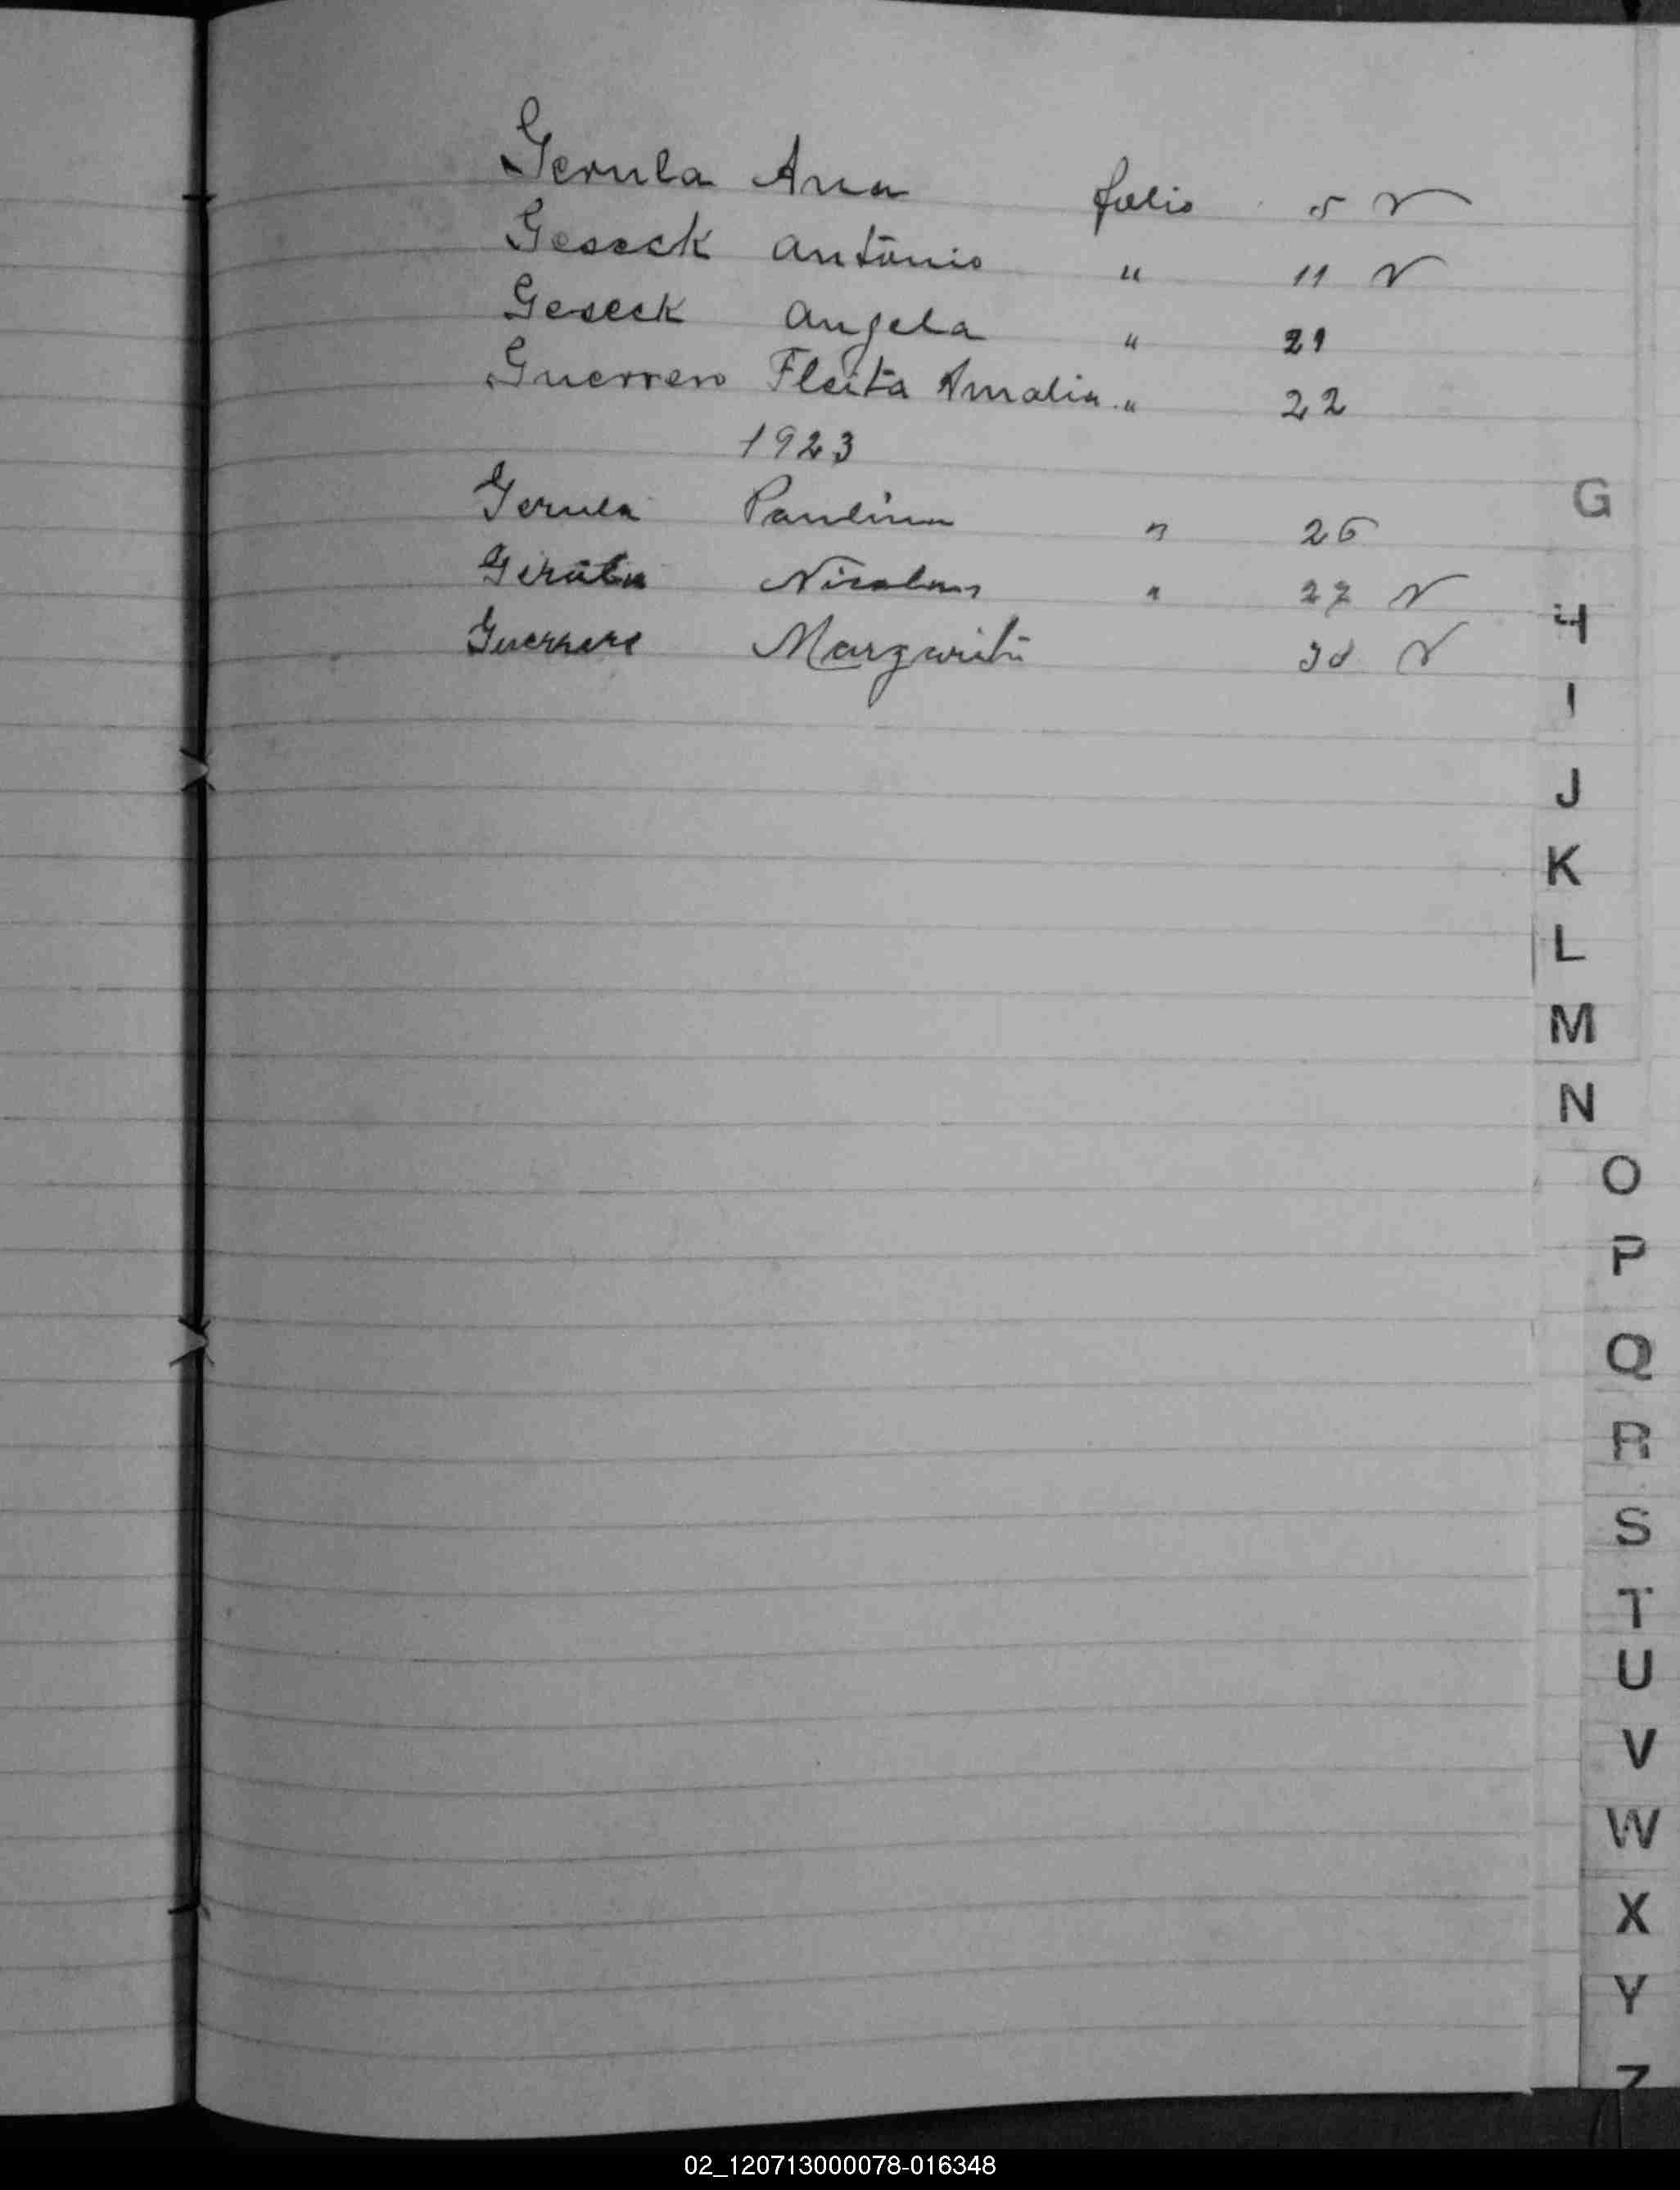 Gerula Ana folio 5 V
Geseck Antonio " 11 V
Geseck Angela " 21
Guerrero Fleita Amalia " 22
1923
Gerula Paulina " 26
Nicolas " 27 V
Guerrero Margarita V
G
H
I
J
K
L
M
N
O
P
Q
R
S
T
U
V
W
X
Y
Z
02_120713000078-016348